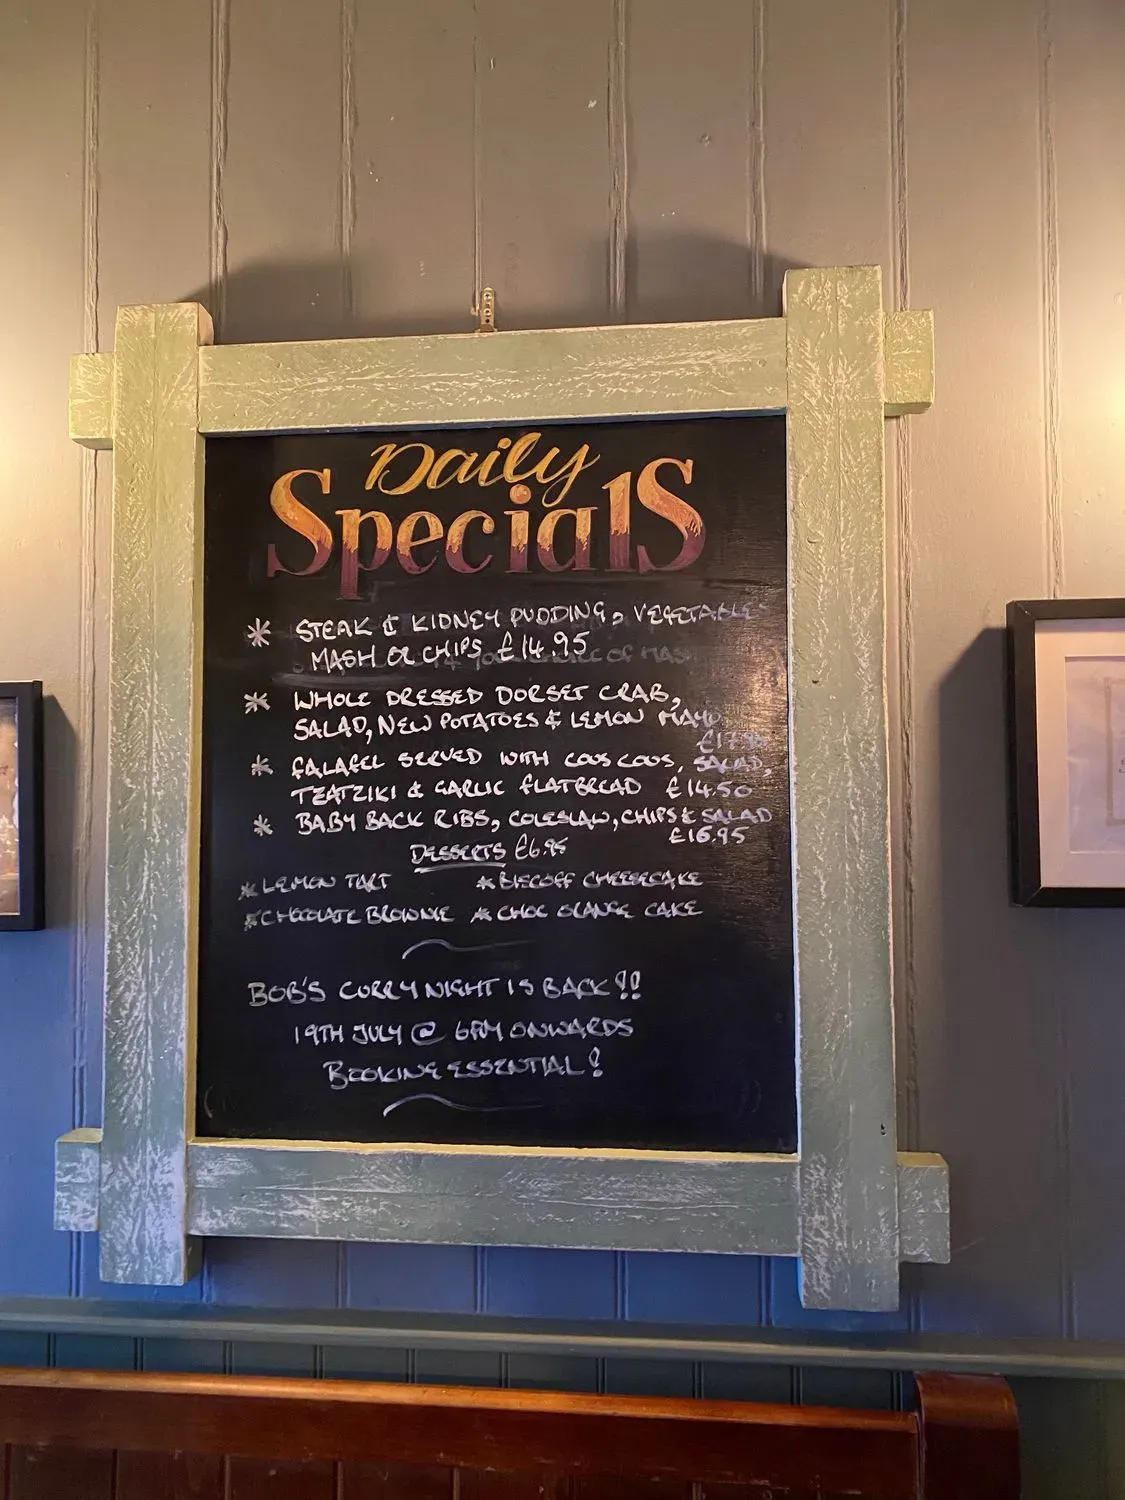 Daily
Specials
* STEAK & KIDNEY PUDDING, VEGETABLES
MASH OR CHIPS £14.95
* WHOLE DRESSED DORSET CRAB,
SALAD, NEW POTATOES & LEMON MAYO
* FALAFEL SERVED WITH COUS COUS, SALAD,
TZATZIKI & GARLIC FLATBREAD £14.50
* BABY BACK RIBS, COLESLAW, CHIPS & SALAD
£16.95
DESSERTS £6.95
* LEMON TART * BISCOFF CHEESECAKE
* CHOCOLATE BROWNIE * CHOC ORANGE CAKE
BOB'S CURRY NIGHT IS BACK!!
19TH JULY @ 6PM ONWARDS
BOOKING ESSENTIAL!